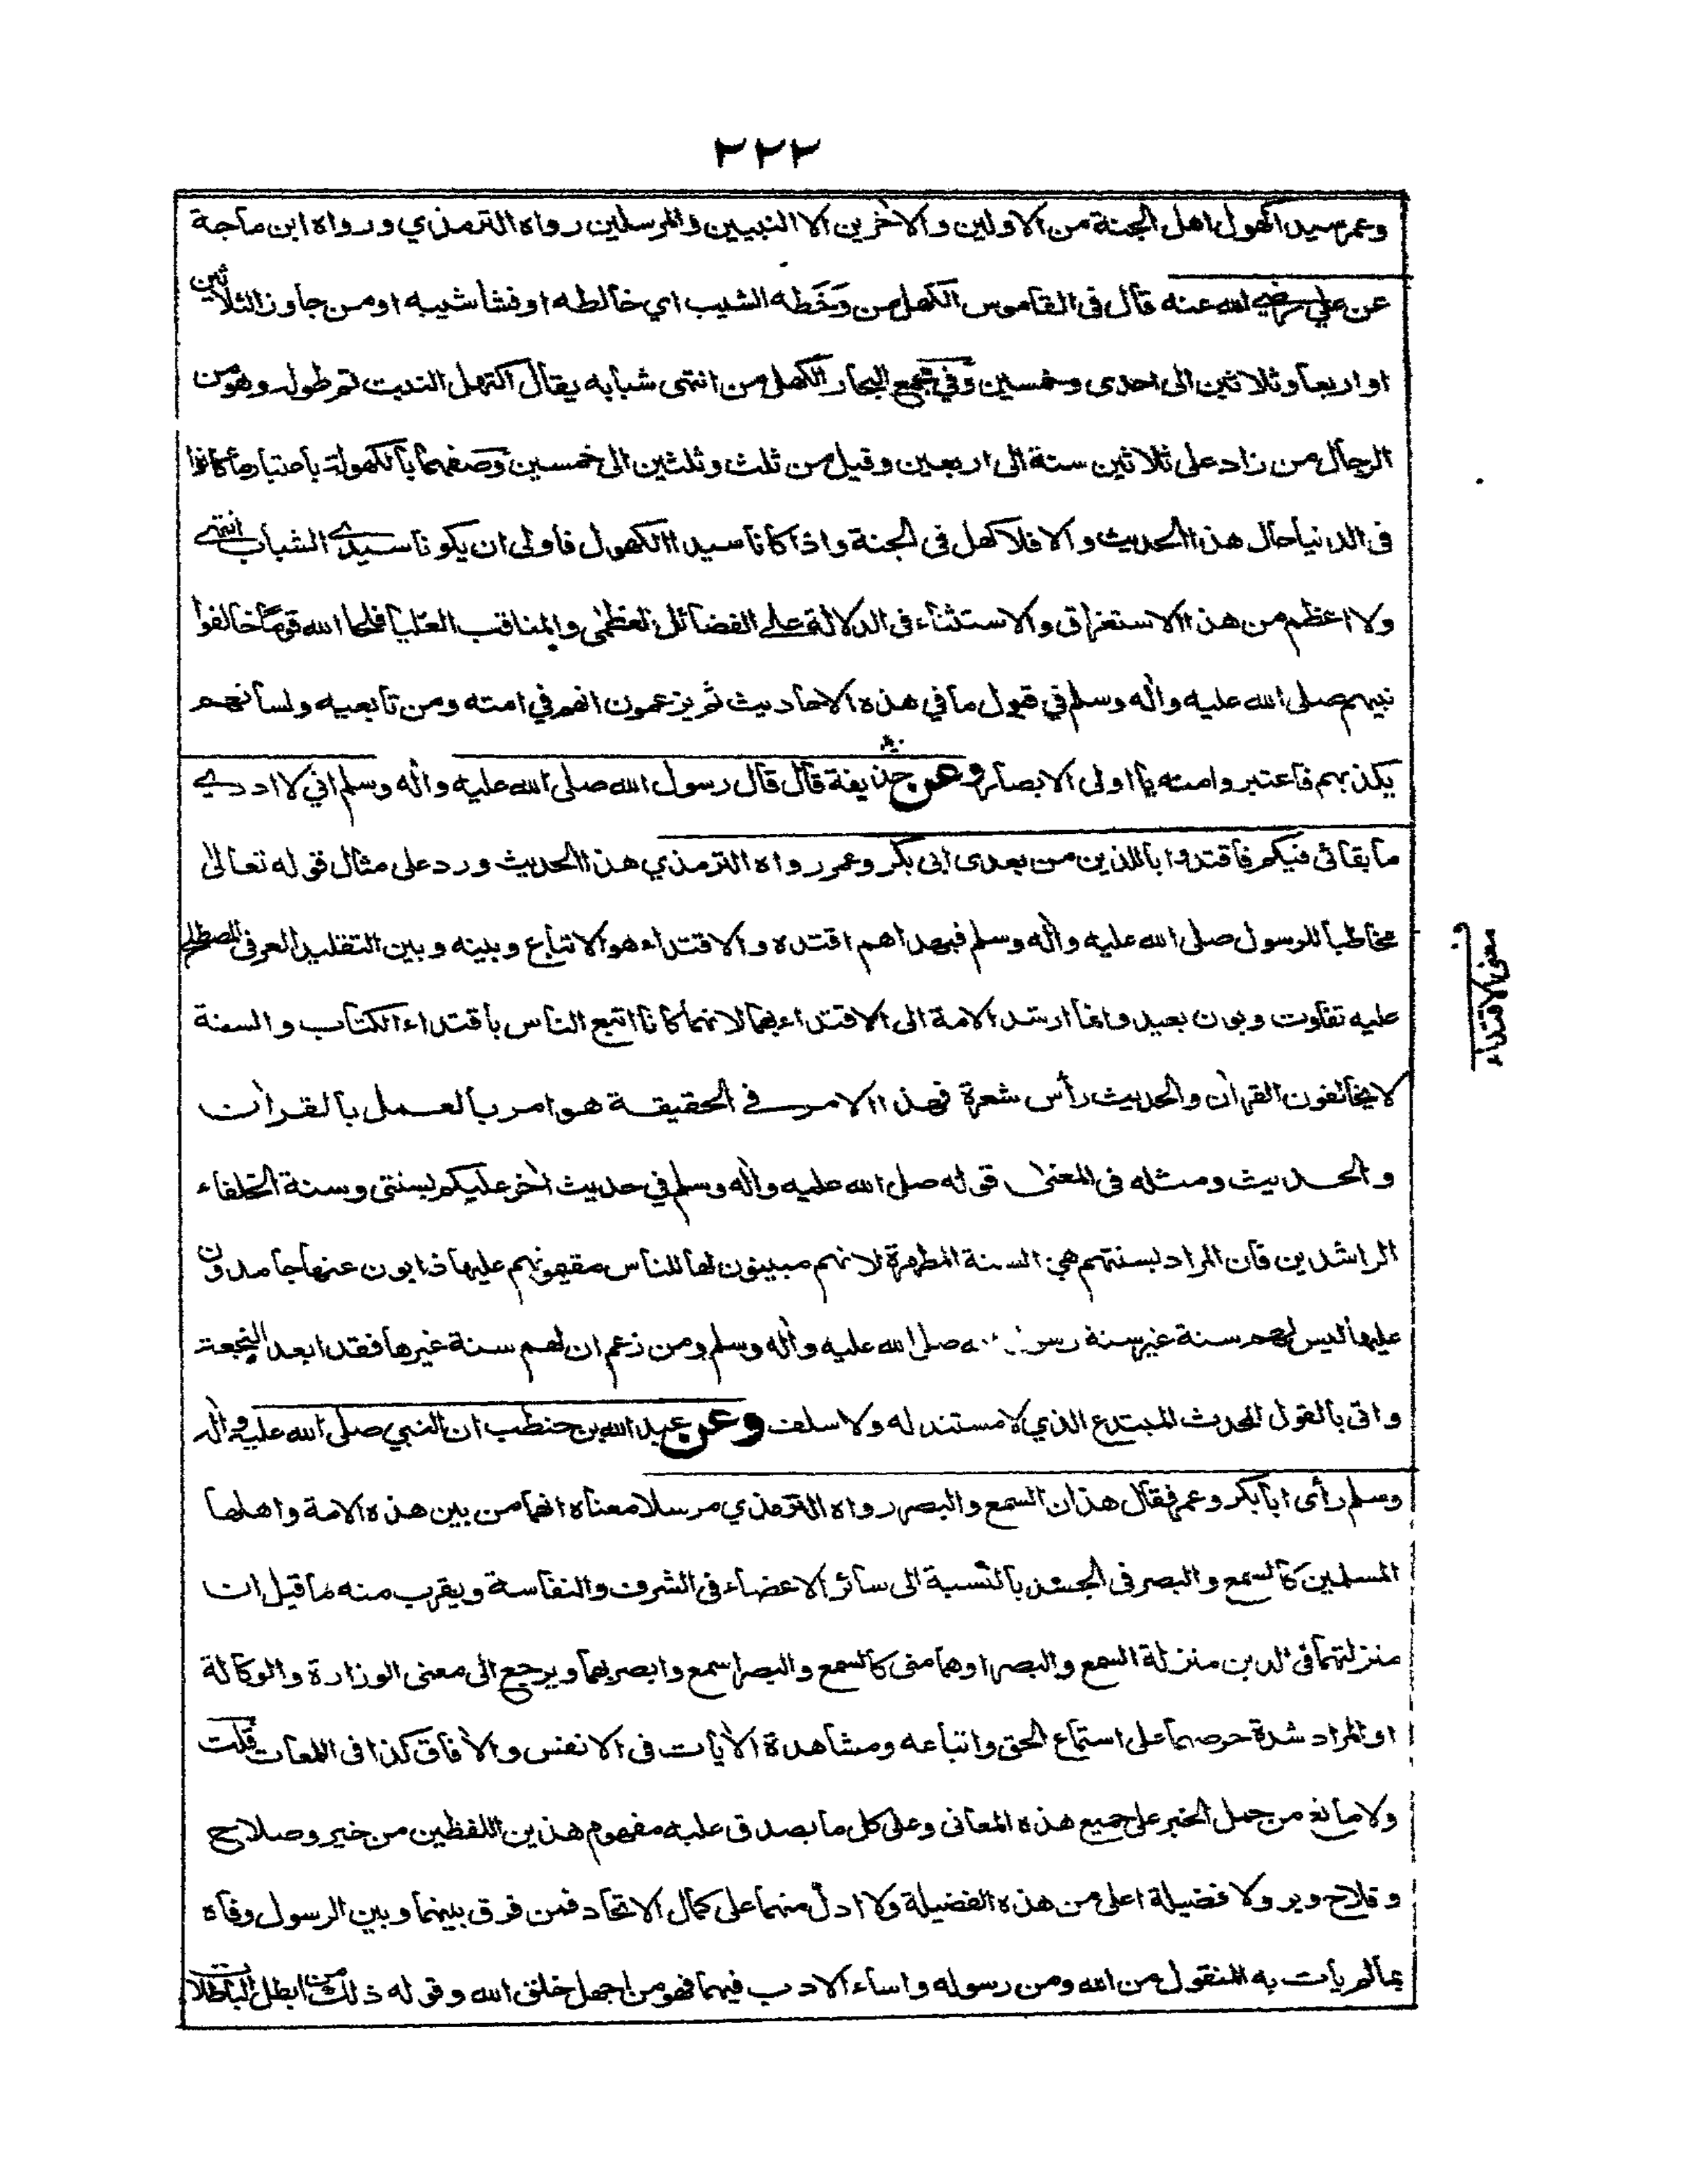 ٢٢٢
وعمر سيدا كهول اهل الجنة من الاولين والاٰخرين الا النبيين والمرسلين رواه الترمذي ورواه ابن ماجة
عن علي رضي الله عنه قال فى القاموس الكهل من وَخَطه الشيب اي خالطه او فشا شيبه او من جاوز الثلاثين
او اربعا وثلاثين الى احدى وخمسين وفي مجمع البحار الكهل من انتهى شبابه يقال اكتهل النبت تم طوله وهو من
الرجال من زاد على ثلاثين سنة الى اربعين وقيل من ثلث وثلثين الى خمسين وصفهما بالكهولة باعتبار ما كانوا
فى الدنيا حال هذا الحديث والا فلا كهل فى الجنة واذا كانا سيدا الكهول فاولى ان يكونا سيدي الشباب انتهى
ولا اعظم من هذا الاستغراق والاستثناء فى الدلالة على الفضائل العظمٰى والمناقب العليا الله قوما خالفوا
نبيهم صلى الله عليه واٰله وسلم في قبول ما في هذه الاحاديث ثم يزعمون انهم في امته ومن تابعيه ولسانهم
يكذبهم فاعتبروا منه يا اولى الابصار وعن حذيفة قال قال رسول الله صلى الله عليه واٰله وسلم اني لا ادري
ما بقائى فيكم فاقتدوا باللذين من بعدى ابى بكر وعمر رواه الترمذي هذا الحديث ورد على مثال قوله تعالىٰ
مخاطبا للرسول صلى الله عليه واٰله وسلم فبهداهم اقتده والاقتداء هو الاتباع وبينه وبين التقليد العرفى المصطلح
عليه تفاوت وبون بعيد وانما ارشد الامة الى الاقتداء بهما لانهما كانا اتبع الناس باقتداء الكتاب والسنة
لا يخالفون القراٰن والحديث رأس شعرة فهذا الامر في الحقيقة هو امر بالعمل بالقراٰن
والحديث ومثله فى المعنى قوله صلى الله عليه واٰله وسلم في حديث اٰخر عليكم بسنتى وسنة الخلفاء
الراشدين فان المراد بسنتهم هي السنة المطهرة لانهم مبينون لها للناس مقيمونهم عليها ذابون عنها جامدون
عليها ليس لهم سنة غير سنة صلى الله عليه واٰله وسلم ومن زعم ان لهم سنة غيرها فقد ابعد النجعة
واتى بالقول المحدث المبتدع الذي لا مستند له ولا سلف وعن عبد الله بن حنطب ان النبي صلى الله عليه واٰله
وسلم رأى ابا بكر وعمر فقال هذان السمع والبصر رواه الترمذي مرسلا معناه انهما من بين هذه الامة واهلها
المسلمين كالسمع والبصر فى الجسد بالنسبة الى سائر الاعضاء فى الشرف والنفاسة ويقرب منه ما قيل ان
منزلتهما فى الدين منزلة السمع والبصر او هما منى كالسمع والبصر اسمع وابصر بهما ويرجع الى معنى الوزارة والوكالة
او المراد شدة حرصهما على استماع الحق واتباعه ومشاهدة الاٰيات فى الانفس والاٰفاق كذا فى اللمعات قلت
ولا مانع من حمل الخبر على جميع هذه المعانى وعلى كل ما يصدق عليه مفهوم هذين اللفظين من خير وصلاح
وفلاح وبر ولا فضيلة اعلى من هذه الفضيلة ولا ادل منهما على كمال الاتحاد فمن فرق بينهما وبين الرسول وفاه
بما لم يأت به المنقول من الله ومن رسوله واساء الادب فيهما فهو من اجهل خلق الله وقوله ذلك من ابطل الباطلات
معنى الاقتداء